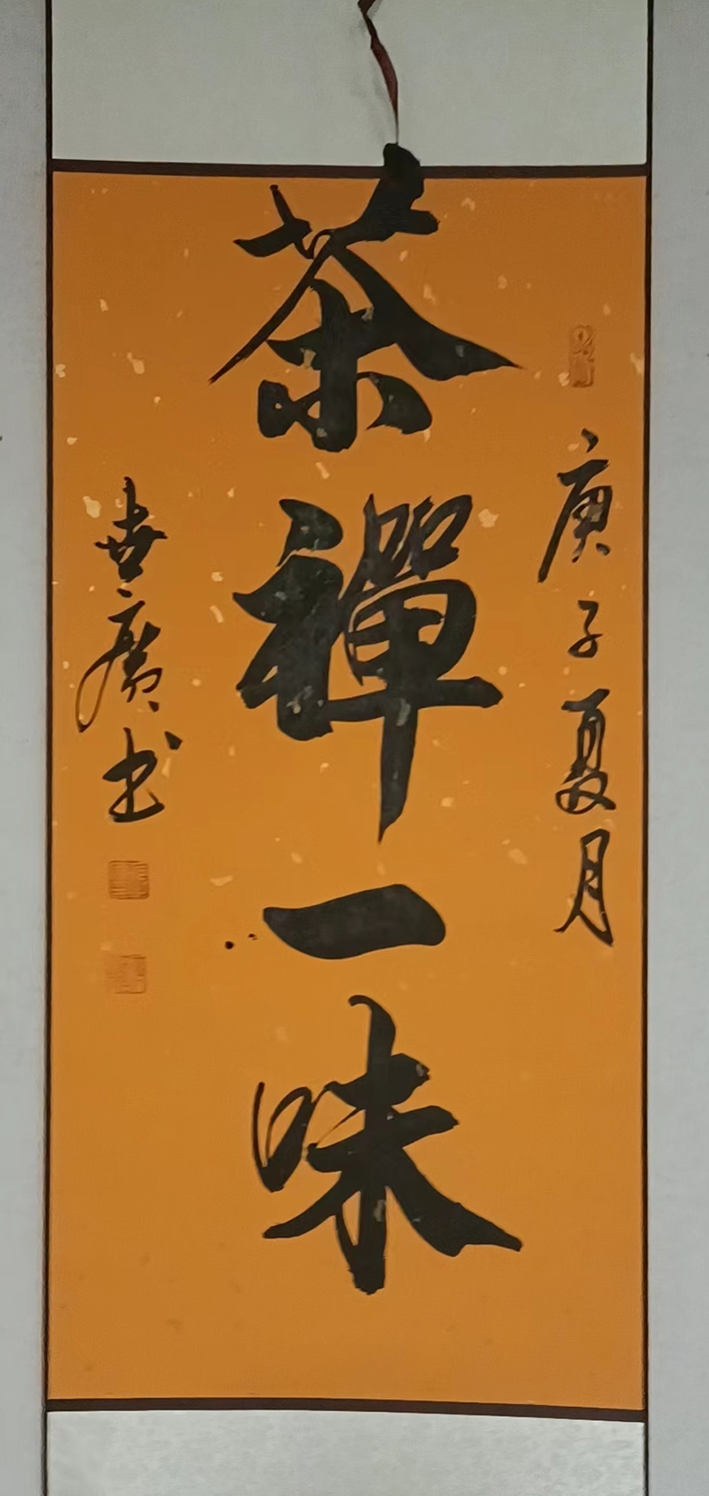 庚子夏月
茶禪一味
世廣书